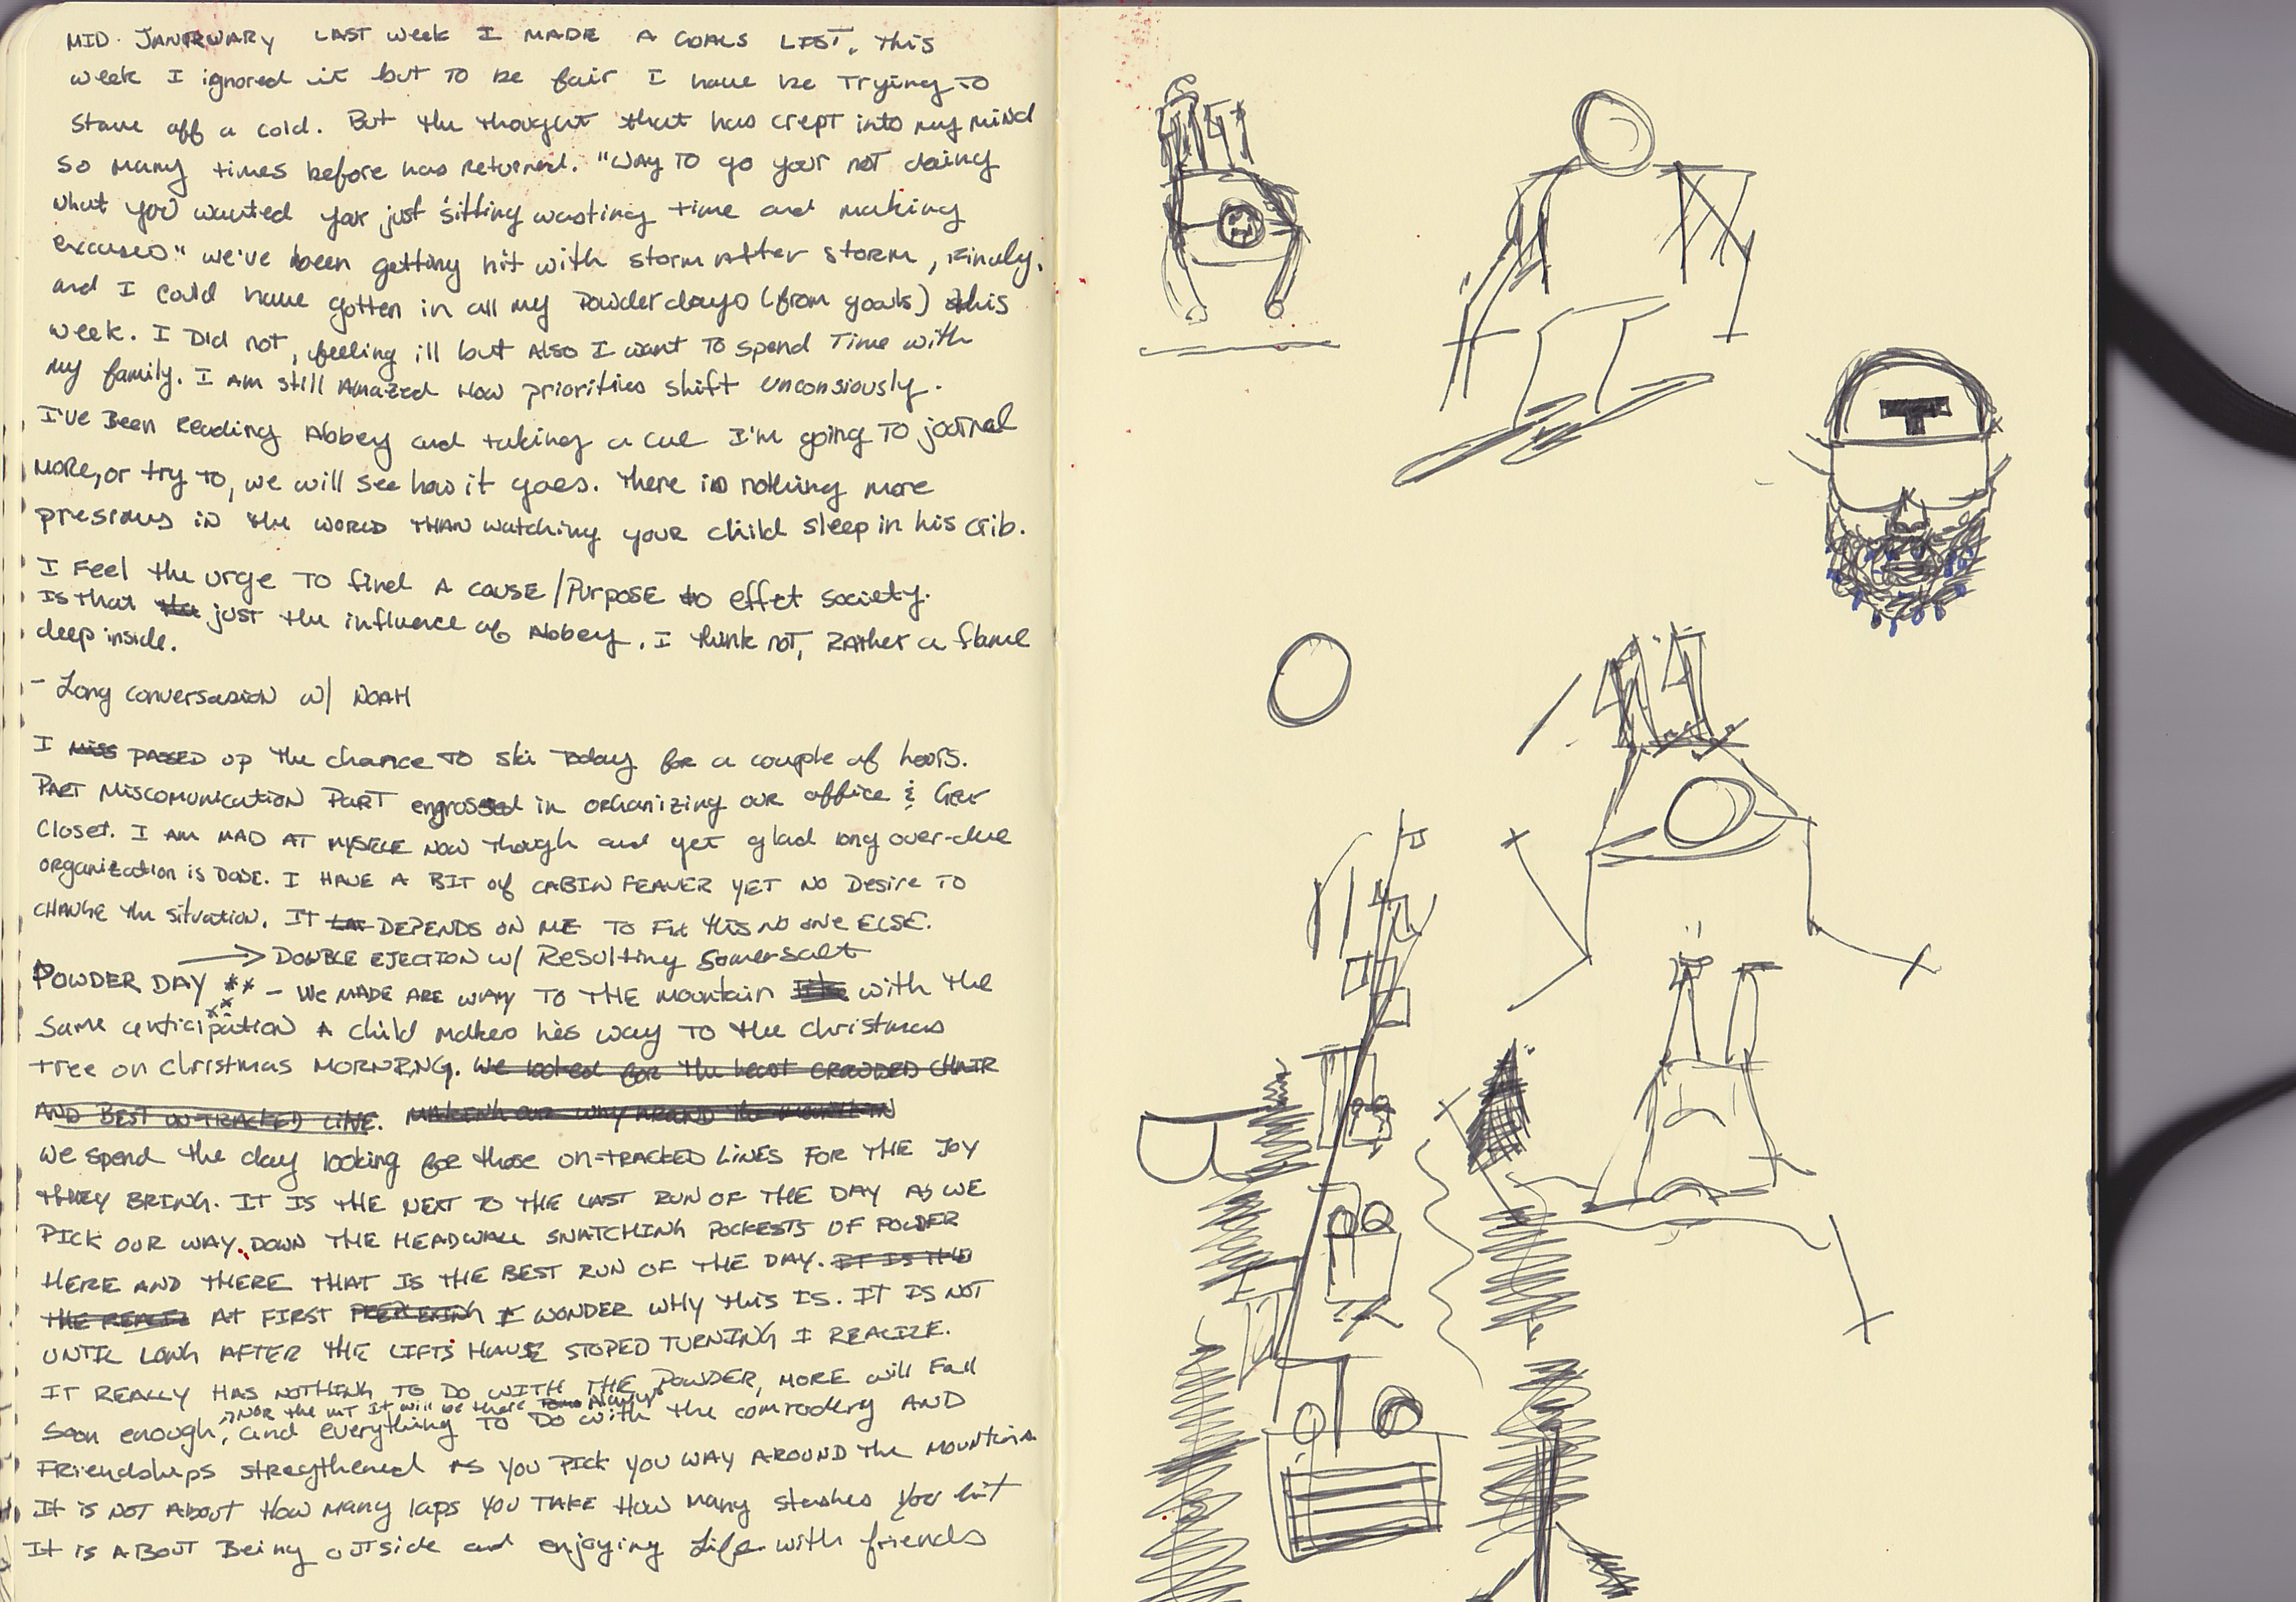 MID JANRWARY LAST week I MADE A GOALS LIST. This
week I ignored it but TO be fair I have be Trying TO
stave off a cold. But the thought that has crept into my mind
so many times before has returned. "WAY TO go your not doing
what you wanted your just sitting wasting time and making
excuses" we've been getting hit with storm After storm,
and I could have gotten in all my Powder days (from goals) this
week. I DID not, feeling ill but Also I want TO spend Time with
my family. I AM still AMAZED HOW priorities shift unconsiously.
I've Been Reading Abbey and taking a cue I'm going TO journal
MORE, or try TO, we will see how it goes. There is nothing more
presious in the WORLD THAN watching your child sleep in his crib.
I Feel the urge TO find A CAUSE/PURPOSE to effet society.
Is that the just the influence of Abbey. I think not, RATHER a flame
deep inside.
- Long conversasion w/ NOAH
I miss PASSED up the chance TO ski Today for a couple of hours.
PART MiscomunicatioN PART engrossed in organizing our office & Gear
Closet. I AM MAD AT MYSELF NOW though and yet glad long over-due
organization is DONE. I HAVE A BIT of CABIN FEAVER YET NO Desire TO
CHANGE the situation. IT DEPENDS ON ME TO FIX this no one ELSE.
→ DOUBLE EJECTION w/ Resulting Somersalt
POWDER DAY ** - We MADE ARE WAY TO THE mountain with the
Same anticipation A child makes his way TO the christmas
tree on Christmas MORNING. We looked for the least CROWDED CHAIR
AND BEST UN-TRACKED LINE. MAKING our WAY AROUND the MOUNTAIN
we spend the day looking for those un-TRACKED LINES FOR THE JOY
THEY BRING. IT IS THE NEXT TO THE LAST RUN OF THE DAY AS WE
PICK OUR WAY DOWN THE HEADWALL SNATCHING POCKESTS OF POWDER
HERE AND THERE THAT IS THE BEST RUN OF THE DAY. IT IS THE
THE AT FIRST I WONDER WHY this IS. IT IS NOT
UNTIL LONG AFTER THE LIFTS HAVE STOPED TURNING I REALIZE.
IT REALLY HAS NOTHING TO DO WITH THE POWDER, MORE will Fall
NOR the MT IT will be there Always
soon enough, and everything TO DO with the comradery AND
Friendships stregthened AS YOU PICK YOU WAY AROUND The MOUNTAIN
It is NOT About How many laps YOU TAKE How many stashes you hit
It is ABOUT Being outside and enjoying Life with friends